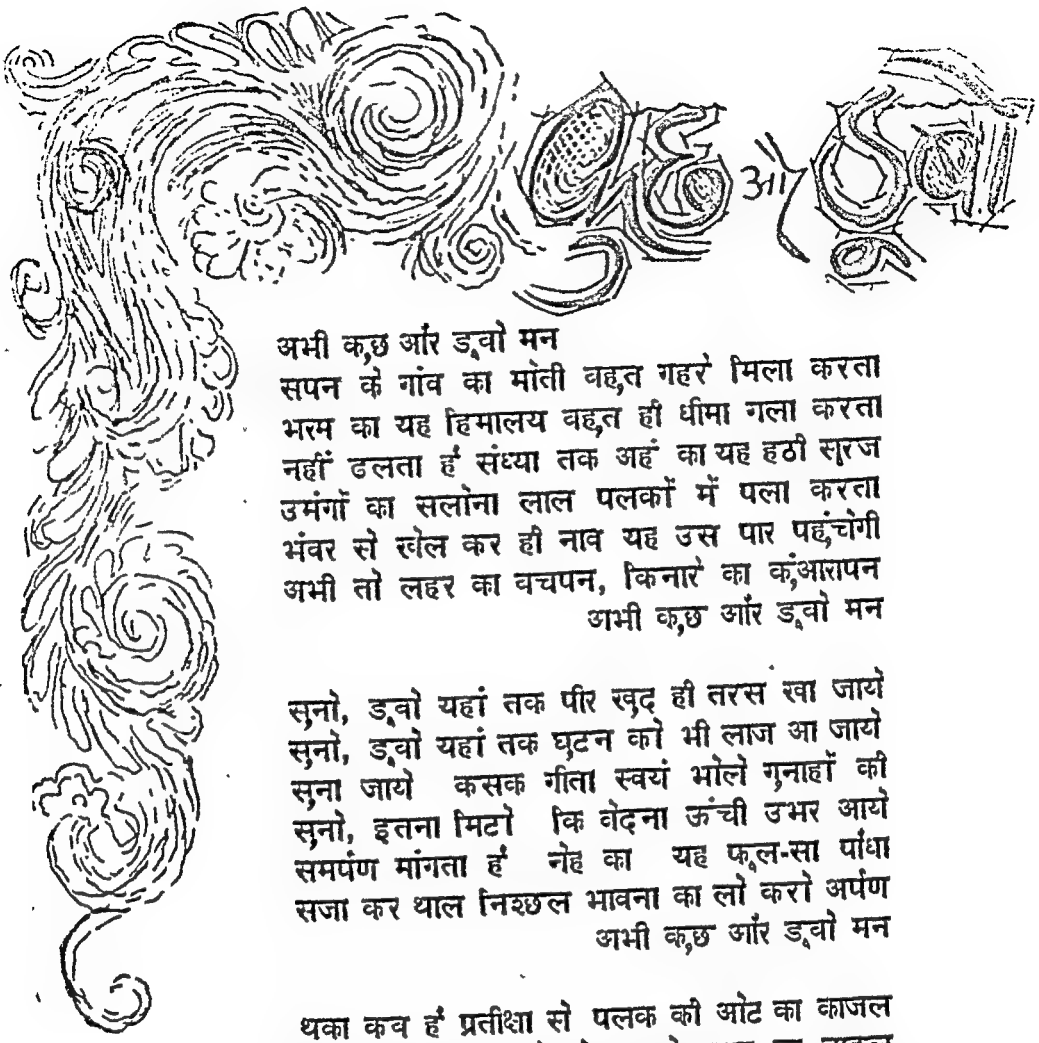 कुछ और डूबो
अभी कुछ और डूबो मन
सपन के गांव का मोती बहुत गहरे मिला करता
भरम का यह हिमालय बहुत ही धीमा गला करता
नहीं ढलता है संध्या तक अहं का यह हठी सूरज
उमंगों का सलोना लाल पलकों में पला करता
भंवर से खेल कर ही नाव यह उस पार पहुंचेगी
अभी तो लहर का बचपन, किनारे का कुंआरापन
अभी कुछ और डूबो मन
सुनो, डूबो यहां तक पीर खुद ही तरस खा जाये
सुनो, डूबो यहां तक घुटन को भी लाज आ जाये
सुना जाये कसक गीता स्वयं भोले गुनाहों की
सुनो, इतना मिटो कि वेदना ऊंची उभर आये
समर्पण मांगता है नेह का यह फूल-सा पौधा
सजा कर थाल निश्छल भावना का लो करो अर्पण
अभी कुछ और डूबो मन
थका कब है प्रतीक्षा से पलक की ओट का काजल